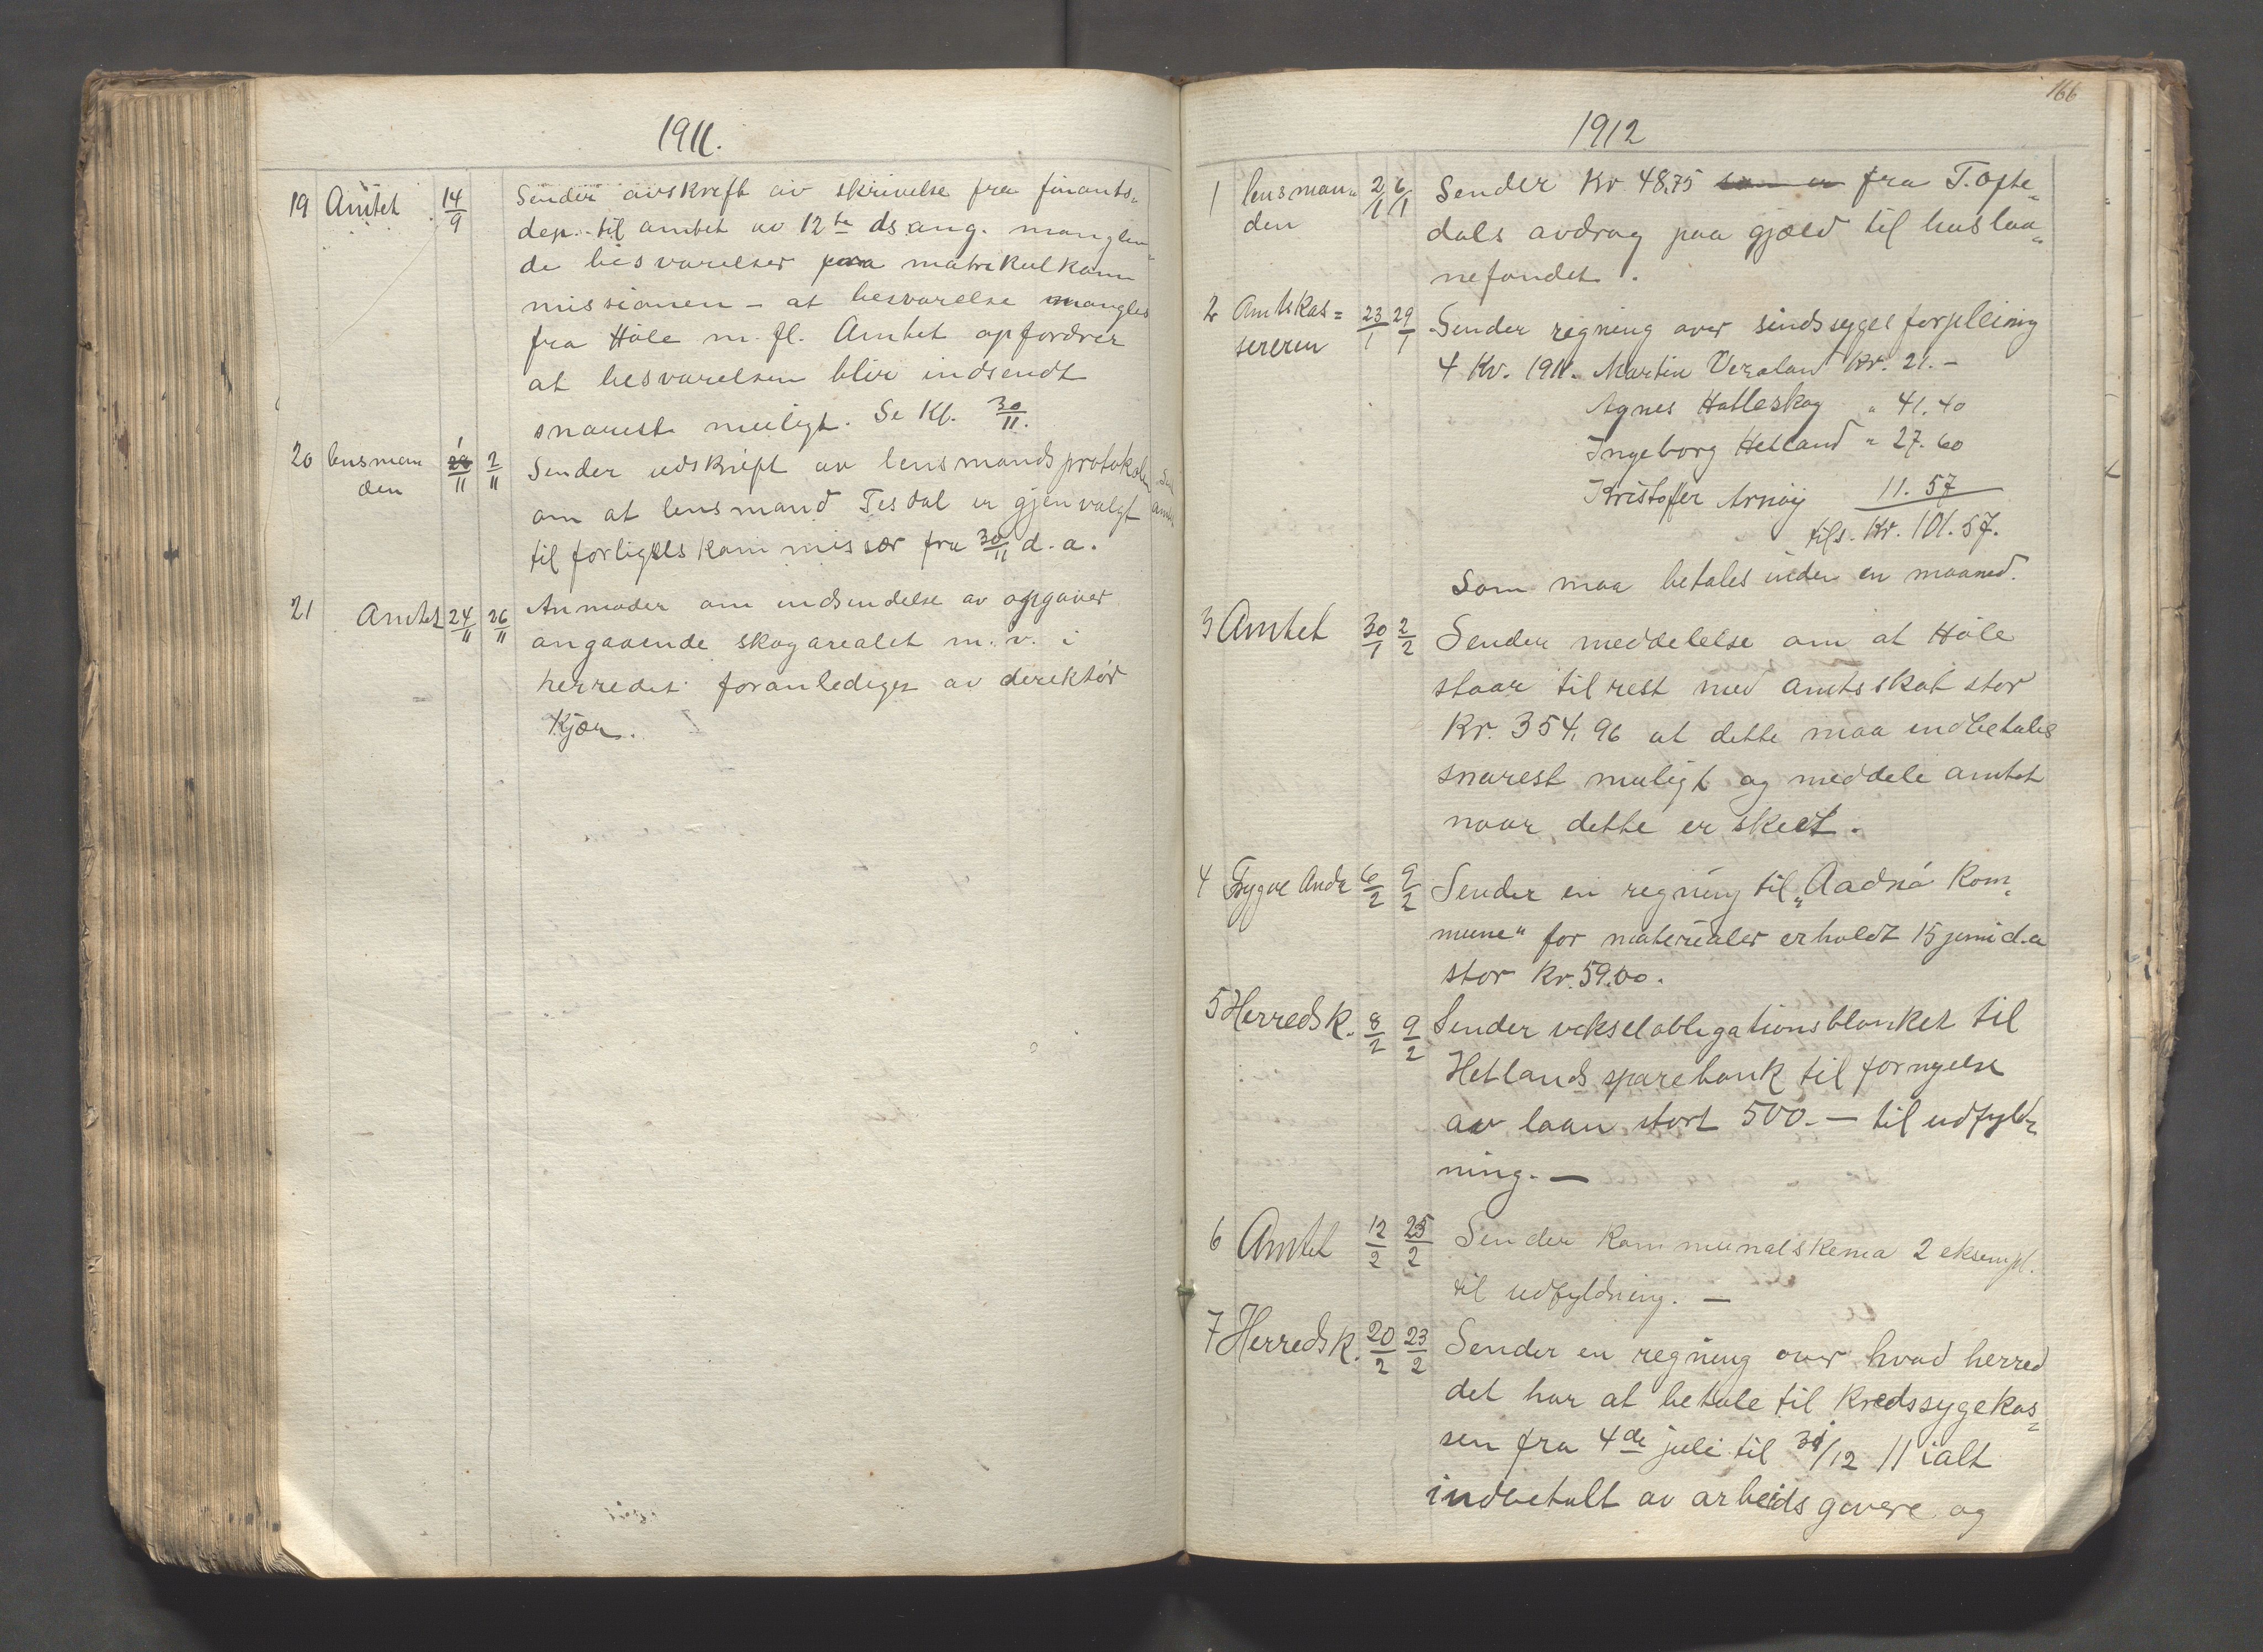 1911.
19 Amtet 14/9 Sender avskreft av skrivelse fra finants-
dep. til amtet av 12te ds. ang. manglen-
de besvarelser paa matrikulkom
missionen – at besvarelse mangles
fra Høle m. fl. Amtet opfordrer
at besvarelsen blir indsendt
snarest muligt. Se Kf. 30/11.
20 lensman 1/11 2/11 Sender udskrift av lensmandsprotokolen
den om at lensmand Tesdal er gjenvalgt
til forligelskommissær fra 30/11 d. a.
21 Amtet 24/11 26/11 Anmoder om indsendelse av opgaver
angaaende skogarealet m. v. i
herredet foranlediget av derektør
Kjær.
166
1912
1 lensman- 2/1 6/1 Sender Kr 48.75 som er fra T. Ofte-
den dals avdrag paa gjæld til huslaa-
nefondet.
2 Amtskas= 23/1 29/1 Sender regning over sindssyges forpleining
sereren 4 Kv. 1911. Martin Veraland Kr. 21.–
Agnes Halleskog " 41.40
Ingeborg Helland " 27.60
Kristoffer Arnøy 11.57
tils. Kr. 101.57.
Som maa betales inden en maaned.
3 Amtet 30/1 2/2 Sender meddelelse om at Høle
staar til rest med amtsskat stor
Kr. 354,96 at dette maa indbetales
snarest muligt og meddele amtet
naar dette er skeet.
4 Trygve Anda 6/2 9/2 Sender en regning til „Aadnø Kom-
mune" for materialer erholdt 15 juni d.a
stor Kr. 59.00.
5 Herredsk. 8/2 9/2 Sender vekselobligationsblanket til
Hetlands sparebank til fornyelse
av laan stort 500.– til udfyld-
ning. –
6 Amtet 12/2 25/2 Sender Kommunalskema 2 eksempl.
til udfyldning. –
7 Herredsk. 20/2 23/2 Sender en regning over hvad herred
det har at betale til Kredssygekas-
sen fra 4de juli til 31/12 11 ialt
indbetalt av arbeidsgavere og